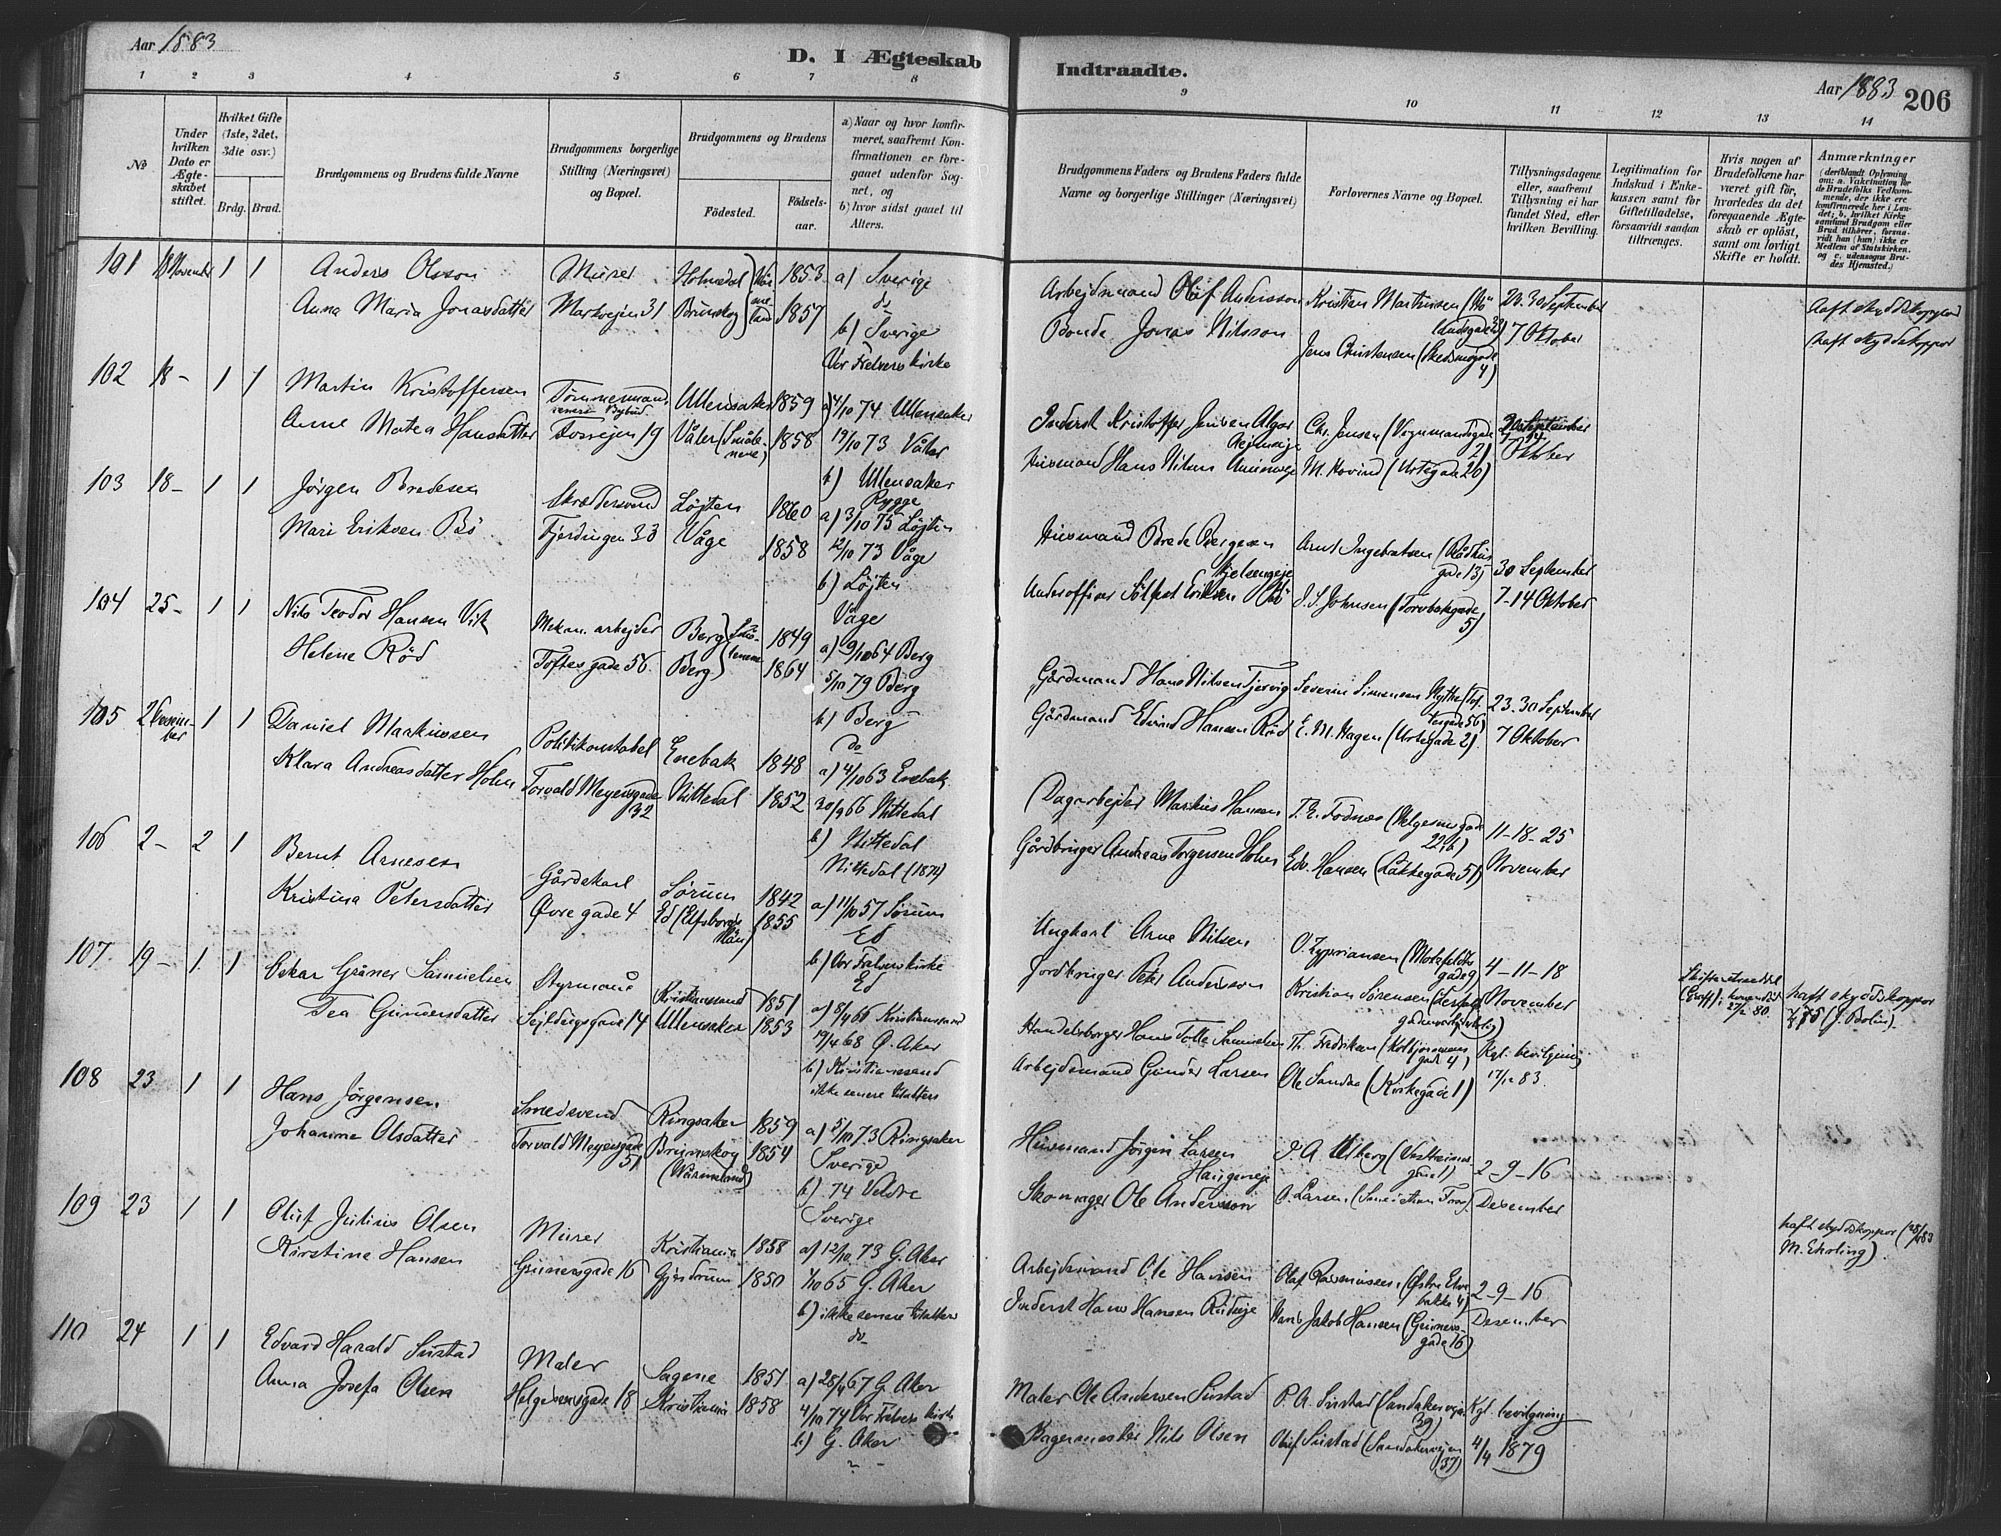 Aar 1883
D. I Ægteskab
Indtraadte.
Aar 1883
206
1 2 3 4 5 6 7 8 9 10 11 12 13 14
№
Under hvilken Dato er Ægteskabet stiftet.
Hvilket Gifte (1ste, 2det, 3die osv.)
Brdg. Brud.
Brudgommens og Brudens fulde Navne
Brudgommens borgerlige Stilling (Næringsvei) og Bopæl.
Brudgommens og Brudens
Fødested.
Fødselsaar.
a) Naar og hvor konfirmeret, saafremt Konfirmationen er foregaaet udenfor Sognet, og
b) hvor sidst gaaet til Alters.
Brudgommens Faders og Brudens Faders fulde Navne og borgerlige Stillinger (Næringsvei)
Forlovernes Navne og Bopæl.
Tillysningsdagene eller, saafremt Tillysning ei har fundet Sted, efter hvilken Bevilling.
Legitimation for Indskud i Enkekassen samt for Giftetilladelse, forsaavidt saadan tiltrænges.
Hvis nogen af Brudefolkene har været gift før, hvorledes da det foregaaende Ægteskab er opløst, samt om lovligt Skifte er holdt.
Anmærkninger
(deriblandt Oplysning om: a. Vakcination for Brudefolks Vedkommende, der ikke ere konfirmerede her i Landet; b. hvilket Kirkesamfund Brudgom eller Brud tilhører, forsaavidt han (hun) ikke er Medlem af Statskirken, og c. udensogns Brudes Hjemsted.)
101 18 November 1 1
Anders Olsson
Murer
Holmedal
1853
a) Sverige
Arbejdsmand Olof Andersson
Kristian Martinsen
23. 30 September
haft skyddskoppor
Anna Maria Jonasdatter
Markvejen 31
Brunskog
1857
do
b) Sverige
Bonde Jonas Nilsson
Jens Christensen (Skedsmogade 4)
7 Oktober
haft skyddskoppor
Vor Frelsers kirke
102 18 - 1 1
Martin Kristoffersen
Tømmermand
Ullensaker
1859
a) 4/10 74 Ullensaker
Inderst Kristoffer Jensen
Chr. Jensen (Vognmandsgade 2)
Oktober
Anne Matea Hansdatter
Fossvejen 19
Våler (Smålenene)
1858
19/10 73 Våler
b) Ullensaker
Rygge
Husmand Hans Nilsen
M. Hovind (Urtegade 20)
103 18 - 1 1
Jørgen Bredesen
Skræddersvend
Løjten
1860
a) 3/10 75 Løjten
Husmand Brede
Arnt Ingebretsen (Rådhusgade 13)
30 September
Mari Eriksen Bö
Fjerdingen 33
Våge
1858
12/10 73 Våge
b) Løjten
Våge
Underofficer Sölfest Eriksen Bö
J. S. Johnsen (Torvbakgade 5)
7-14 Oktober
104 25 - 1 1
Nils Teodor Hansen Vik
Mekan. arbejder
Berg
1849
a) 9/10 64 Berg
Gårdmand Hans Nilsen
Severin Simensen Mythe (Toftesgade 56)
23-30 September
Helene Rød
Toftesgade 56
Berg
1864
5/10 79 Berg
b) Berg
do
Gårdmand Edvind Hansen Rød
E. M. Hagen (Urtegade 2)
7 Oktober
105 2 Desember 1 1
Daniel Markussen
Politikonstabel
Enebak
1848
a) 4/10 63 Enebak
Dagarbejder Markus Hansen
T. E. Fodnæs (Helgesensgade 22,b)
11-18-25
Klara Andreasdatter Holm
Torvald Meyersgade 32
Nittedal
1852
30/9 66 Nittedal
b) Nittedal
Nittedal (1874)
Gårdbruger Andreas Torgersen Holm
Edv. Hansen (Lakkegade 51)
November
106 2 - 2 1
Bernt Arnesen
Gårdskarl
Sørum
1842
a) 11/10 57 Sørum
Ungkarl Arne Nilsen
O. Zypriansen
4-11-18
Kristina Petersdatter
Øvregade 4
Ed (Elfsborgs län)
1855
Ed
b) Vor Frelsers kirke
Ed
Jordbruger Peter Andersson
Kristian Sørensen
November
haft skyddskoppor
107 19 - 1 1
Oskar Grüner Samuelsen
Styrmand
Kristianssand
1851
a) 8/4 66 Kristianssand
Handelsborger Hans Tolle Samuelsen
Th. Fredriksen (Kolbjørnsensgade 4)
Kgl. bevilgning
Tea Gundersdatter
Sejldugsgade 14
Ullensaker
1853
19/4 68 Ø. Aker
b) Kristianssand
ikke senere tilalters
Arbejdsmand Gunder Larsen
Ole Sandne (Kirkegade 1)
17/12 83.
108 23 1 1
Hans Jørgensen
Smedsvend
Ringsaker
1859
a) 5/10 73 Ringsaker
Husmand Jørgen Larsen Haugeneje
P. A. Ulberg
2-9-16
Johanne Olsdatter
Torvald Meyersgade 51
Brunskog (Wärmeland)
1854
Sverige
b) 74 Veldre
Sverige
Skomager Ole Andersson
O. Larsen
Desember
haft skyddskoppor
M. Ehrling).
109 23 1 1
Oluf Julius Olsen
Murer
Kristiania
1858
a) 12/10 73 G. Aker
Arbejdsmand Ole Hansen
Olaf Rasmussen (Østre Elvebakke 4)
2-9-16
Kirstine Hansen
Grünersgade 16
Gjerdrum
1850
1/10 65 G. Aker
b) ikke senere tilalters
do
Inderst Hans Hansen Rudseje
Hans Jakob Hansen (Grünersgade 16)
Desember
110 24 1 1
Edvard Harald Sustad
Maler
Sagene
1851
a) 28/4 67 G. Aker
Maler Ole Andersen Sustad
P. A. Sustad (Sandakervejen 39)
Kgl. bevilgning
Anna Josefa Olsen
Helgesensgade 18
Kristiania
1858
4/10 74 Vor Frelsers kirke
b) G. Aker
Bagermester Nils Olsen
Oluf Sustad (Sandakervejen 37)
4/4 1879